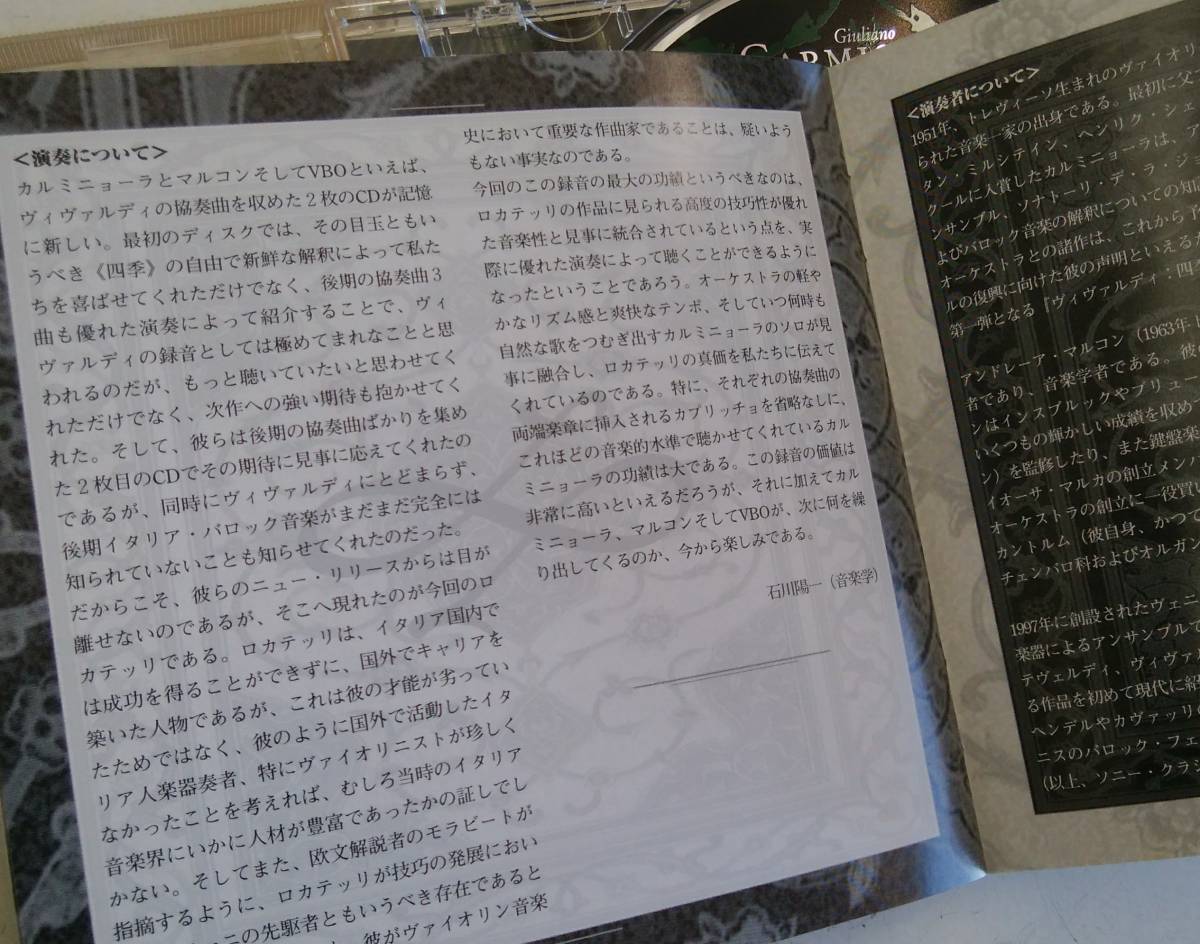 Giuliano
＜演奏について＞
カルミニョーラとマルコンそしてVBOといえば、
ヴィヴァルディの協奏曲を収めた２枚のCDが記憶
に新しい。最初のディスクでは、その目玉ともい
うべき《四季》の自由で新鮮な解釈によって私た
ちを喜ばせてくれただけでなく、後期の協奏曲３
曲も優れた演奏によって紹介することで、ヴィ
ヴァルディの録音としては極めてまれなことと思
われるのだが、もっと聴いていたいと思わせてく
れただけでなく、次作への強い期待も抱かせてく
れた。そして、彼らは後期の協奏曲ばかりを集め
た２枚目のCDでその期待に見事に応えてくれたの
であるが、同時にヴィヴァルディにとどまらず、
後期イタリア・バロック音楽がまだまだ完全には
知られていないことも知らせてくれたのだった。
だからこそ、彼らのニュー・リリースからは目が
離せないのであるが、そこへ現れたのが今回のロ
カテッリである。ロカテッリは、イタリア国内で
は成功を得ることができずに、国外でキャリアを
築いた人物であるが、これは彼の才能が劣ってい
たためではなく、彼のように国外で活動したイタ
リア人楽器奏者、特にヴァイオリニストが珍しく
なかったことを考えれば、むしろ当時のイタリア
音楽界にいかに人材が豊富であったかの証しでし
かない。そしてまた、欧文解説者のモラビートが
指摘するように、ロカテッリが技巧の発展におい
ニの先駆者ともいうべき存在であると
彼がヴァイオリン音楽
史において重要な作曲家であることは、疑いよう
もない事実なのである。
今回のこの録音の最大の功績というべきなのは、
ロカテッリの作品に見られる高度の技巧性が優れ
た音楽性と見事に統合されているという点を、実
際に優れた演奏によって聴くことができるように
なったということであろう。オーケストラの軽や
かなリズム感と爽快なテンポ、そしていつ何時も
自然な歌をつむぎ出すカルミニョーラのソロが見
事に融合し、ロカテッリの真価を私たちに伝えて
くれているのである。特に、それぞれの協奏曲の
両端楽章に挿入されるカプリッチョを省略なしに、
これほどの音楽的水準で聴かせてくれているカル
ミニョーラの功績は大である。この録音の価値は
非常に高いといえるだろうが、それに加えてカル
ミニョーラ、マルコンそしてVBOが、次に何を繰
り出してくるのか、今から楽しみである。
石川陽一（音楽学）
＜演奏者について＞
1951年、トレヴィーソ生まれのヴァイオリ
られた音楽一家の出身である。最初に父
タン・ミルシテイン、ヘンリク・シェ
クールに入賞したカルミニョーラは、ア
ンサンブル、ソナトーリ・デ・ラ・ジ
よびバロック音楽の解釈についての知
オーケストラとの諸作は、これから
ルの復興に向けた彼の声明といえる
第一弾となる『ヴィヴァルディ・四
アンドレーア・マルコン（1963年、
者であり、音楽学者である。彼の
ンはインスブルックやブリュー
いくつもの輝かしい成績を収め
ン）を監修したり、また鍵盤楽
イオーサ・マルカの創立メンバ
オーケストラの創立に一役買い
カントルム（彼自身、かつて
チェンバロ科およびオルガン
1997年に創設されたヴェニ
楽器によるアンサンブルで
テヴェルディ、ヴィヴァル
る作品を初めて現代に紹
ヘンデルやカヴァッリの
ニスのバロック・フェ
（以上、ソニー・クラシ